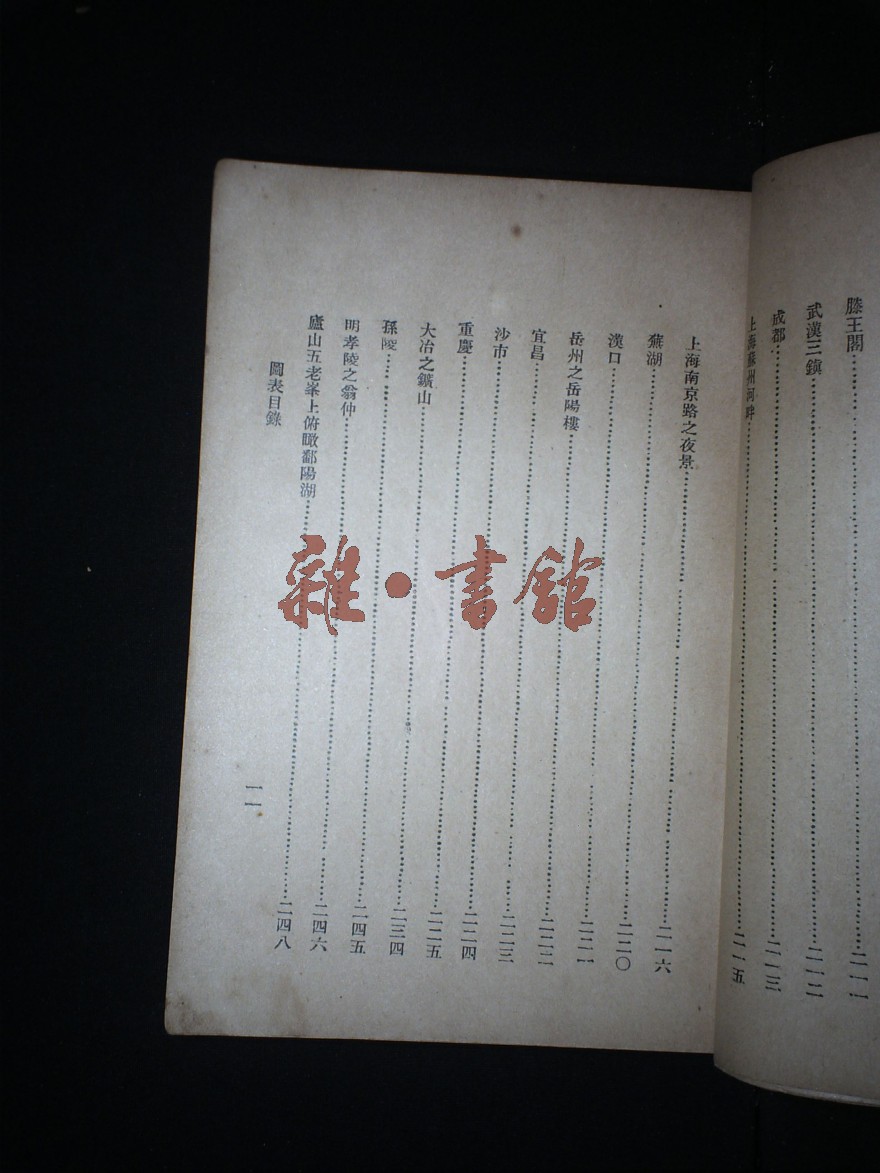 滕王閣……二一一
武漢三鎮……二一二
成都……二一三
上海蘇州河畔……二一五
上海南京路之夜景……二一六
蕪湖……二二〇
漢口……二二一
岳州之岳陽樓……二二二
宜昌……二二三
沙市……二二四
重慶……二二五
大冶之鑛山……二三四
孫陵……二四五
明孝陵之翁仲……二四六
廬山五老峯上俯瞰鄱陽湖……二四八
圖表目錄
一一
雜・書館